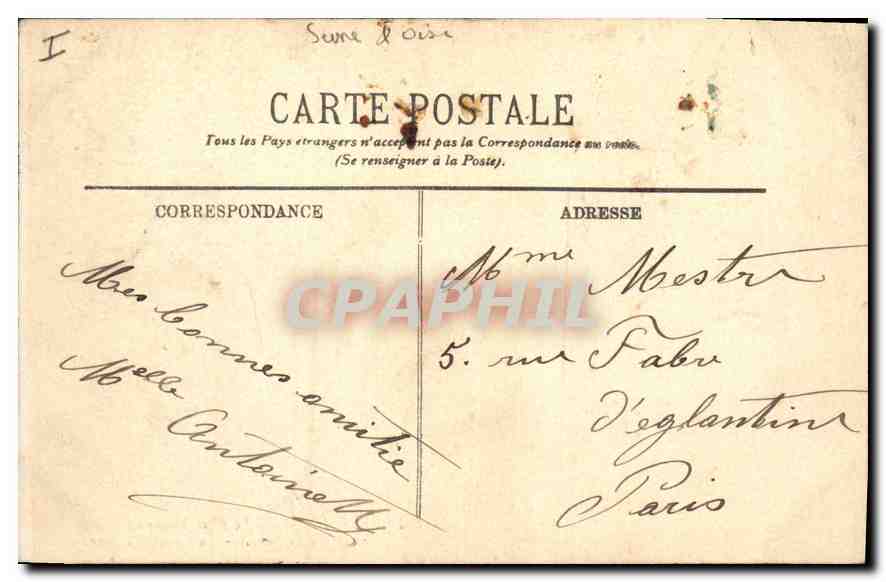 I
Seine & Oise
CARTE POSTALE
Tous les Pays etrangers n'acceptent pas la Correspondance au recto.
(Se renseigner à la Poste).
CORRESPONDANCE
Mes bonnes amitie
Melle Antoinette
ADRESSE
Mme Mestre
5. rue Fabre
d'eglantine
Paris
CPAPHIL